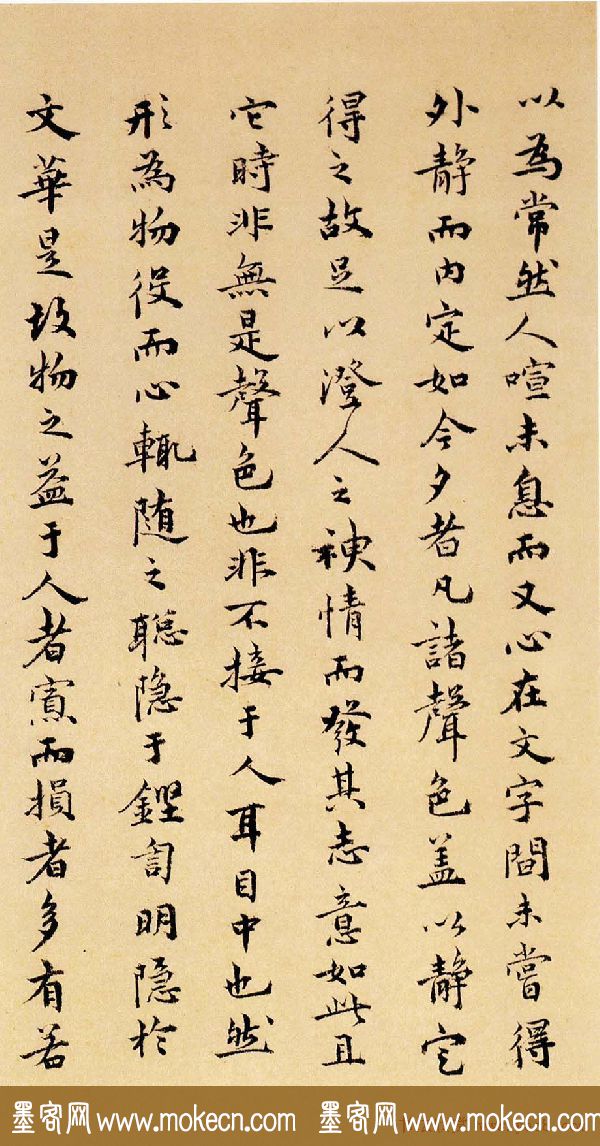 以為常然人喧未息而又心在文字間未嘗得
外靜而內定如今夕者凡諸聲色盖以靜定
得之故足以澄人之神情而發其志意如此且
它時非無是聲色也非不接于人耳目中也然
形為物役而心輒随之聪隐于鏗訇明隐於
文華是故物之益于人者寡而損者多有若
墨客网 www.mokecn.com 墨客网 www.mokecn.com